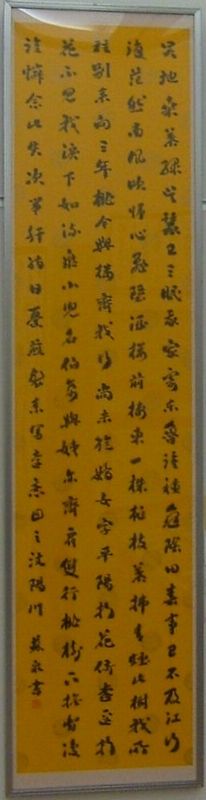 吴地桑葉緑吴蠶已三眠我家寄東魯誰種龜陰田春事已不及江行
復茫然南風吹歸心飛墮酒樓前樓東一株桃枝葉拂青煙此樹我所
種别来向三年桃今與樓齊我行尚未旋嬌女字平陽折花倚桃邊折
花不見我淚下如流泉小兒名伯禽與姊亦齊肩雙行桃樹下撫背復
誰憐念此失次第肝腸日憂煎裂素寫遠意因之汶陽川